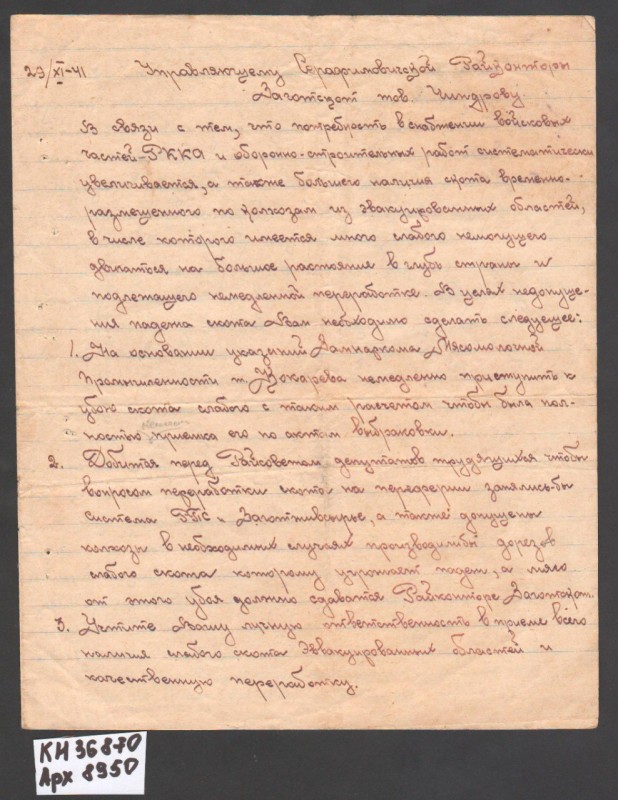 23/XI-41 Управляющему Серафимовичской Райконторы
Заготскот тов. Чиндрову
В связи с тем, что потребность в снабжении войсковых
частей РККА и оборонно-строительных работ систематически
увеличивается, а также большего наличия скота временно-
размещенного по колхозам из эвакуированных областей,
в числе которого имеется много слабого немогущего
двигаться на большое растояние в глубь страны и
подлежащего немедленной переработке. В целях недопуще-
ния падежа скота Вам необходимо сделать следующее:
1. На основании указаний Замнаркома Мясомолочной
промышленности т. Кокарева немедленно приступить к
убою скота слабого с таким расчетом чтобы была пол-
ностью приемка его по актам выбраковки.
2. Добится перед Райсоветом депутатов трудящихся чтобы
вопросом переработки скота на переферии занялись-бы
система РПС и Заготживсырье, а также допущены
колхозы в необходимых случаях производимый дорезов
слабого скота которому угрожает падеж, а мясо
от этого убоя должно сдаватся Райконторе Заготскот.
3. Учтите Вашу личную ответственность в приеме всего
наличия слабого скота эввакуированных областей и
качественную переработку.
КП 36870
Арх 8950